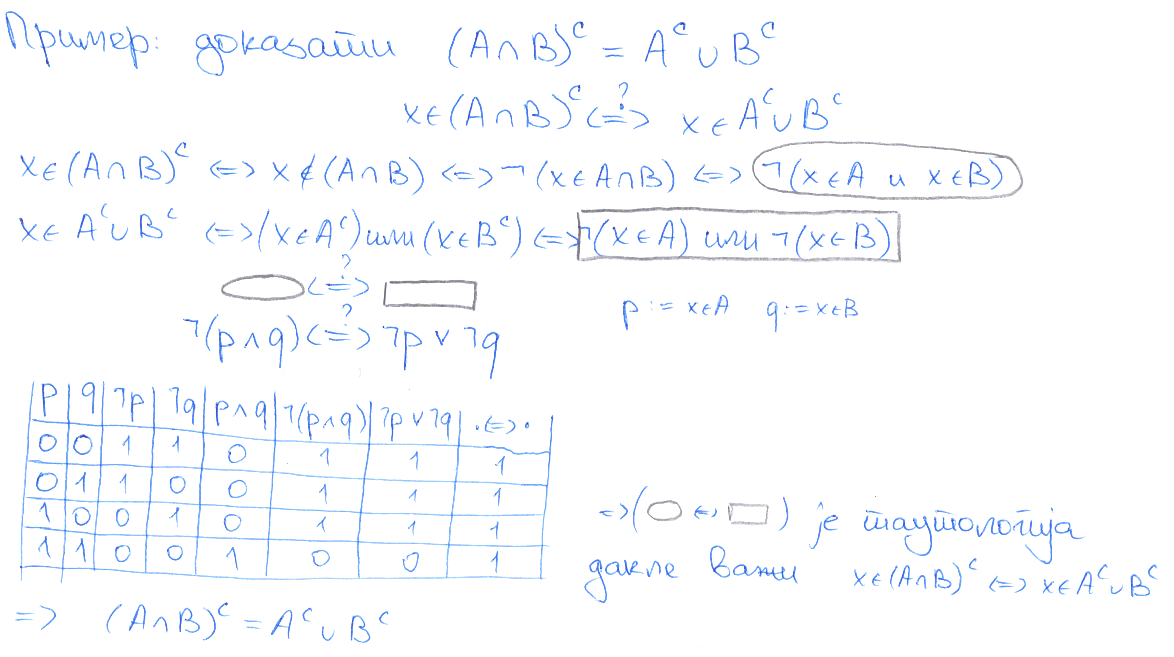 Пример: доказати (A∩B)ᶜ = Aᶜ ∪ Bᶜ
x∈(A∩B)ᶜ <=?=> x∈Aᶜ∪Bᶜ
x∈(A∩B)ᶜ <=> x∉(A∩B) <=> ¬(x∈A∩B) <=> ¬(x∈A и x∈B)
x∈Aᶜ∪Bᶜ <=> (x∈Aᶜ) или (x∈Bᶜ) <=> ¬(x∈A) или ¬(x∈B)
<=?=>
p := x∈A q := x∈B
¬(p∧q) <=?=> ¬p ∨ ¬q
p q ¬p ¬q p∧q ¬(p∧q) ¬p∨¬q ·<=>·
0 0 1 1 0 1 1 1
0 1 1 0 0 1 1 1
1 0 0 1 0 1 1 1
1 1 0 0 1 0 0 1
=> ( <=> ) је таутологија
дакле важи x∈(A∩B)ᶜ <=> x∈Aᶜ∪Bᶜ
=> (A∩B)ᶜ = Aᶜ∪Bᶜ